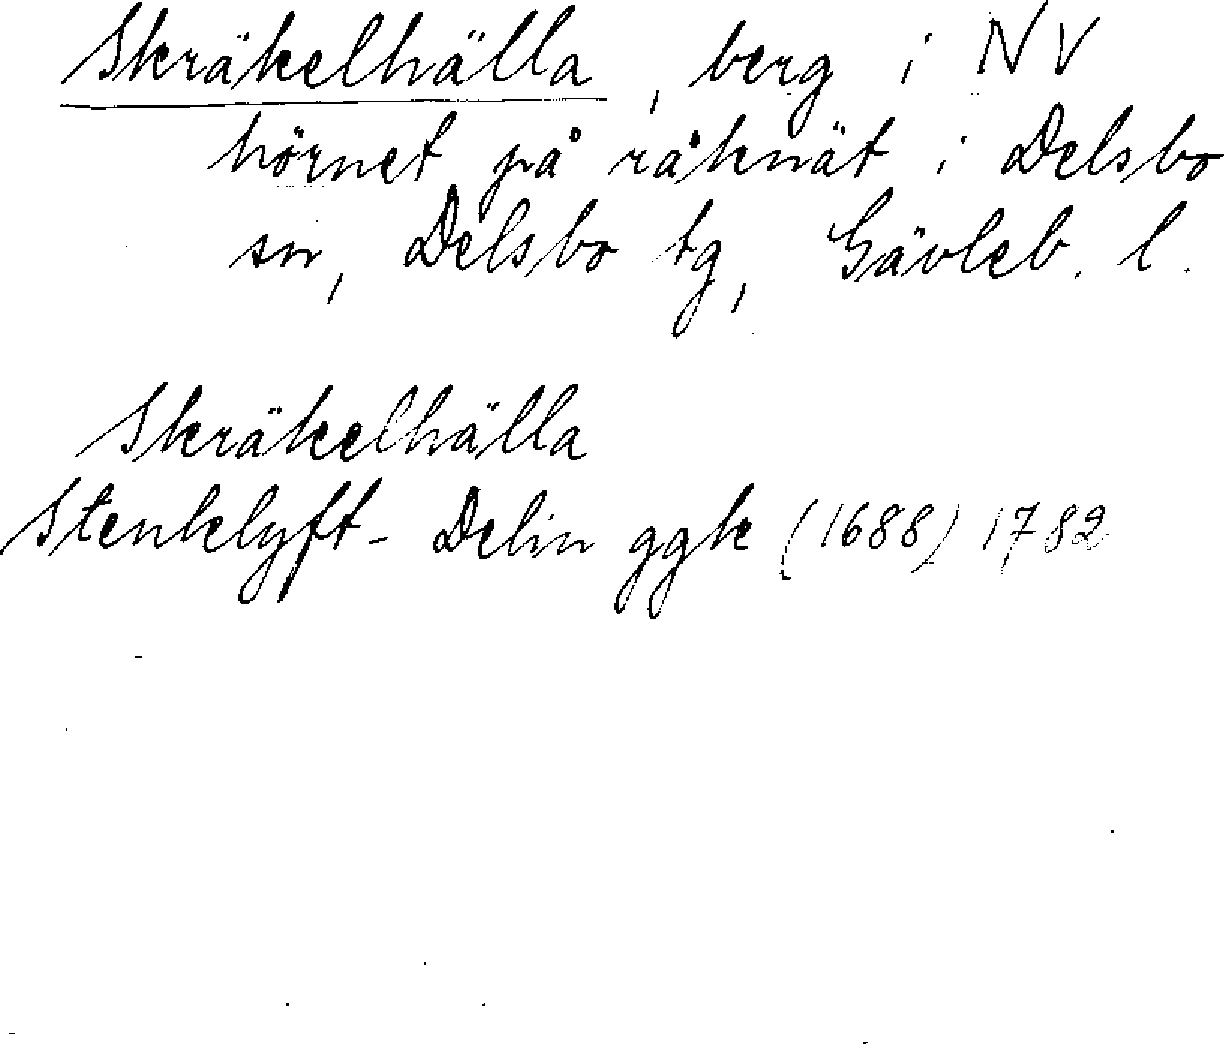 Skräkelhälla, berg i NV
hörnet på råknät i Delsbo
sn, Delsbo tg, Gävleb. l.
Skräkelhälla
Stenklyft- Delin ggk (1688) 1782